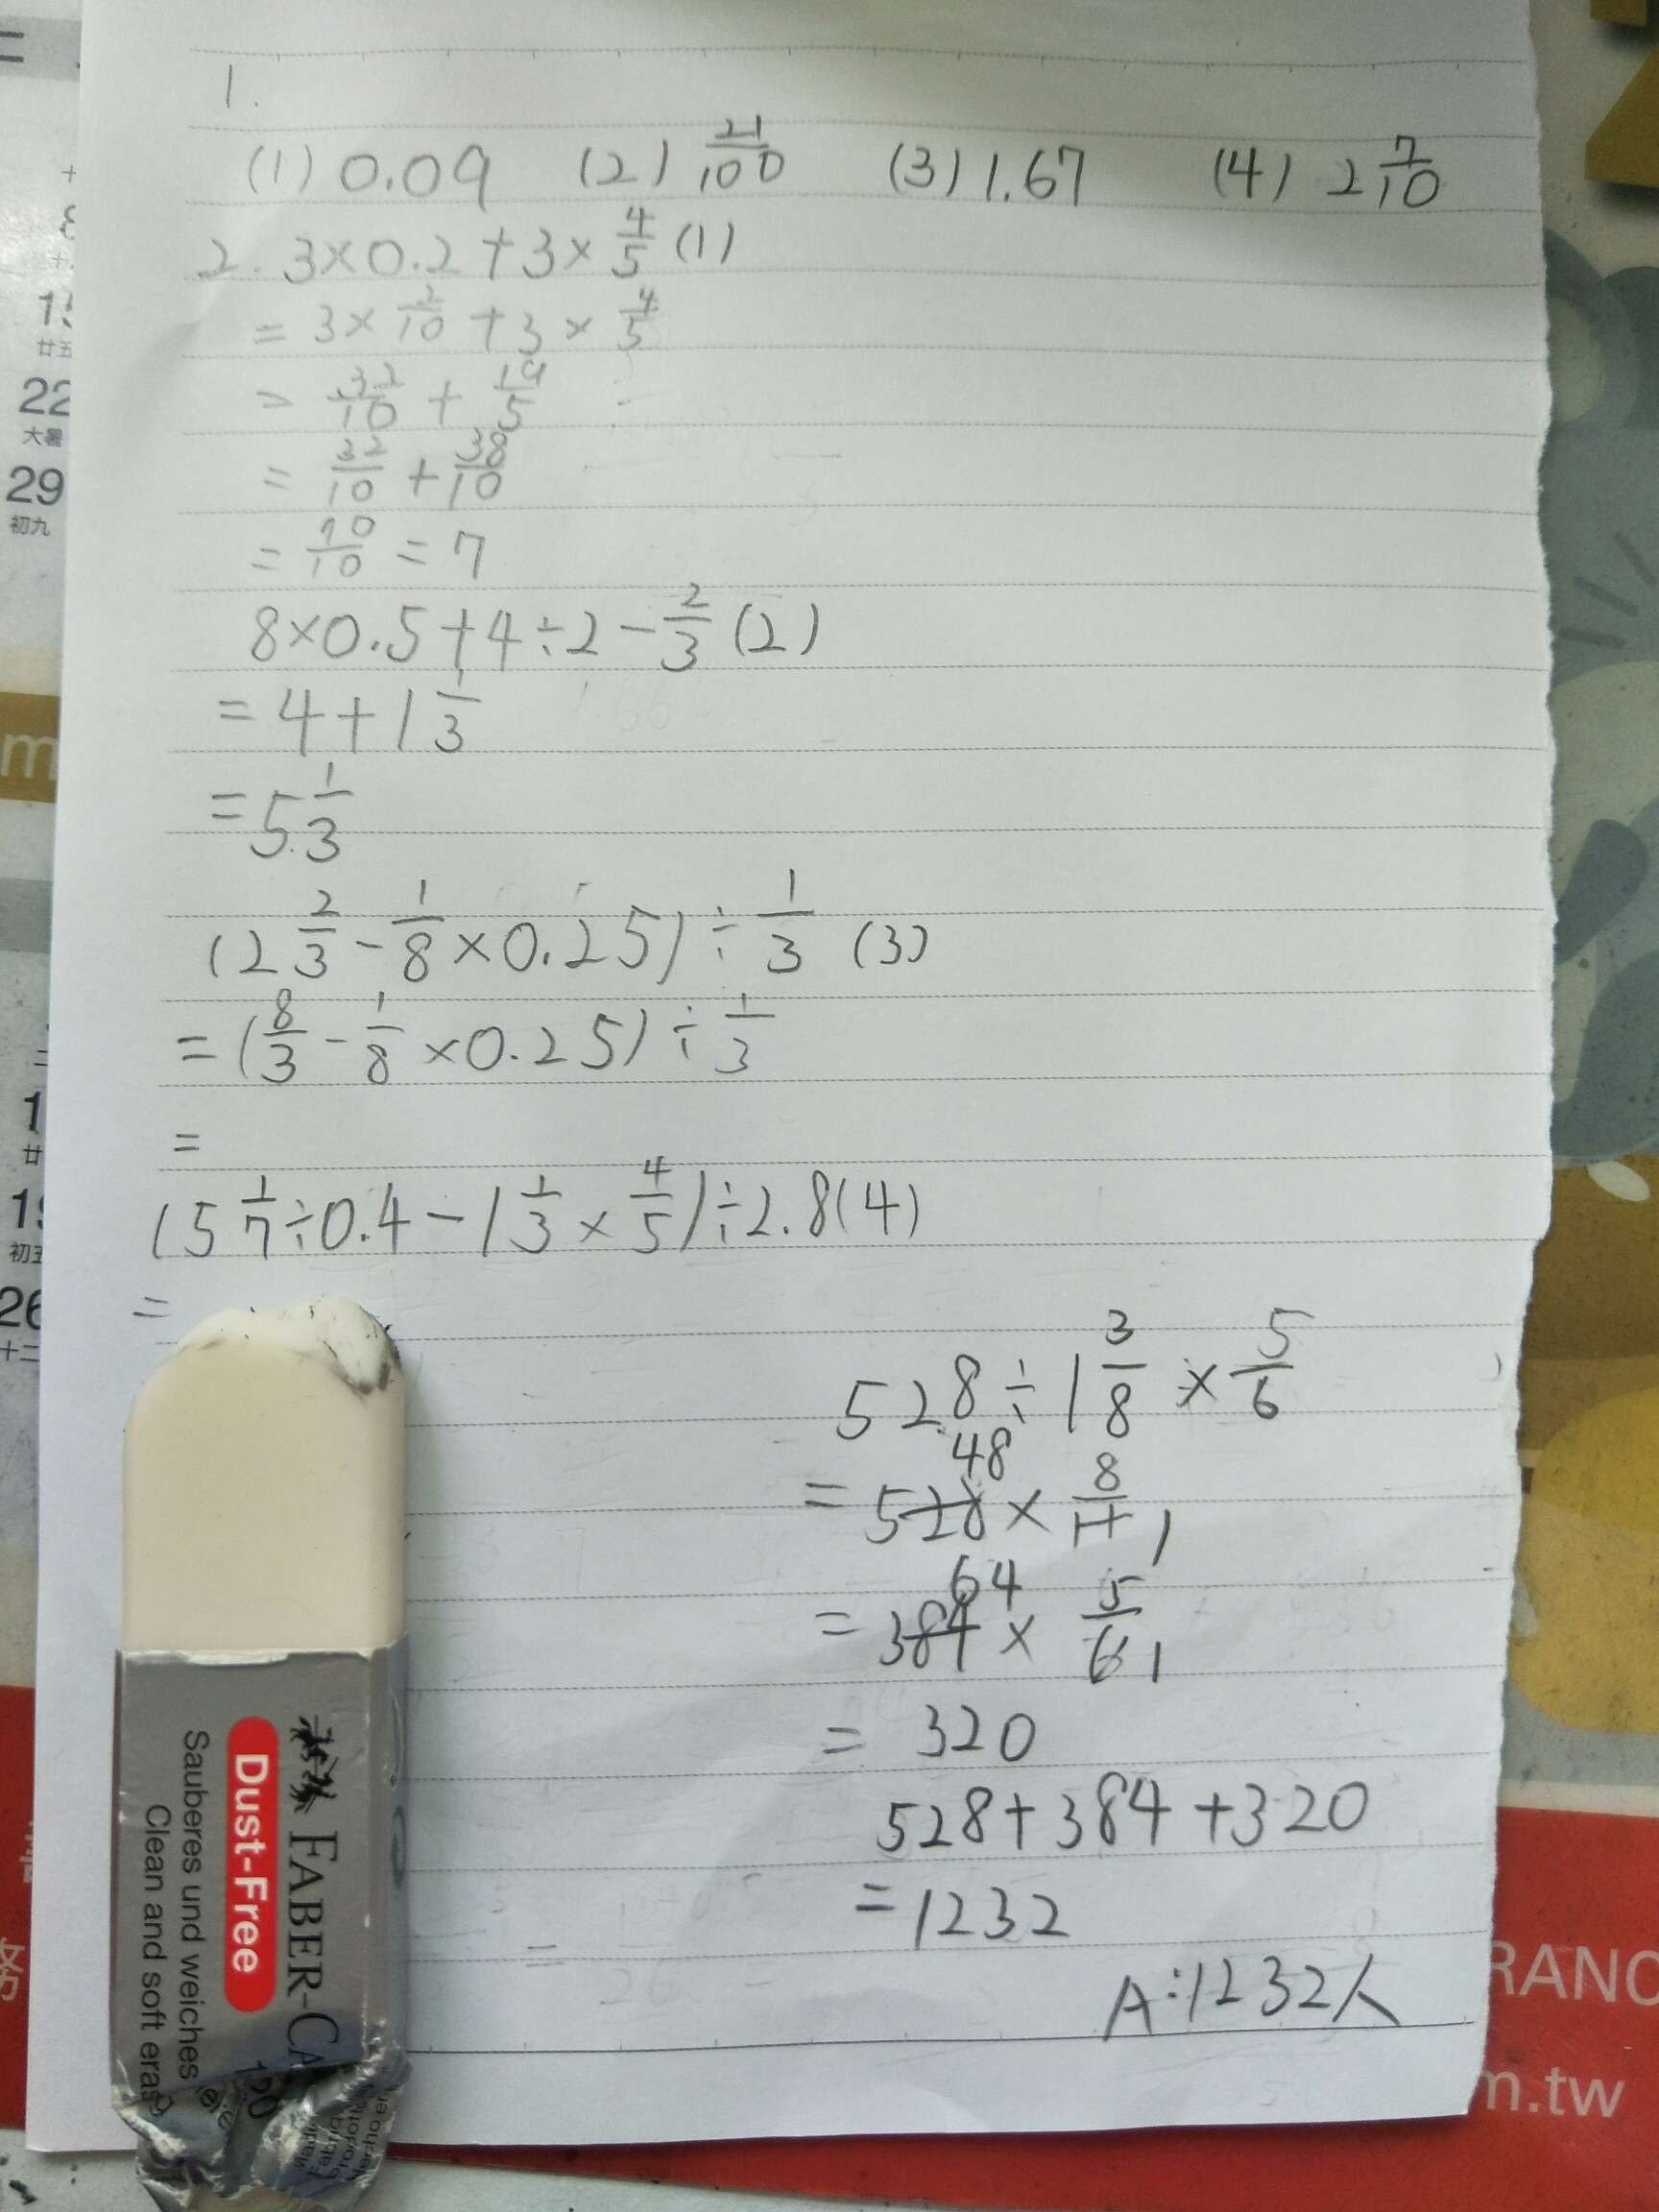 1.
(1) 0.09 (2) 21/100 (3) 1.67 (4) 2 7/10
2. 3×0.2+3×4/5 (1)
= 3×2/10+3×4/5
= 32/10+19/5
= 32/10+38/10
= 70/10=7
8×0.5+4÷2-2/3 (2)
= 4+1 1/3
= 5 1/3
(2 2/3-1/8×0.25)÷1/3 (3)
= (8/3-1/8×0.25)÷1/3
=
(5 1/7÷0.4-1 1/3×4/5)÷2.8 (4)
=
528÷1 3/8×5/6
48
= 528×8/11 1
64
= 384×5/6 1
= 320
528+384+320
= 1232
A:1232人
FABER-CA
Dust-Free
Sauberes und weiches
Clean and soft eras
22
大暑
29
初九
廿五
26
十二
RANC
m.tw
務